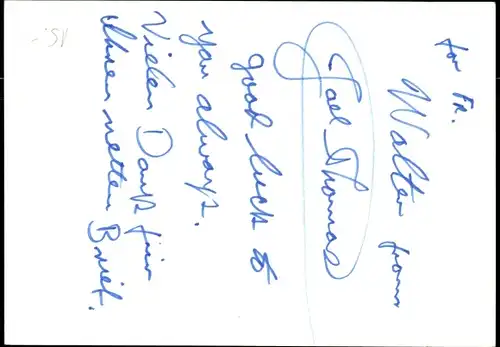 for Fr.
Walter from
Gael Thomas
good luck to
you always.
Vielen Dank für
Ihren netten Brief.
15.-